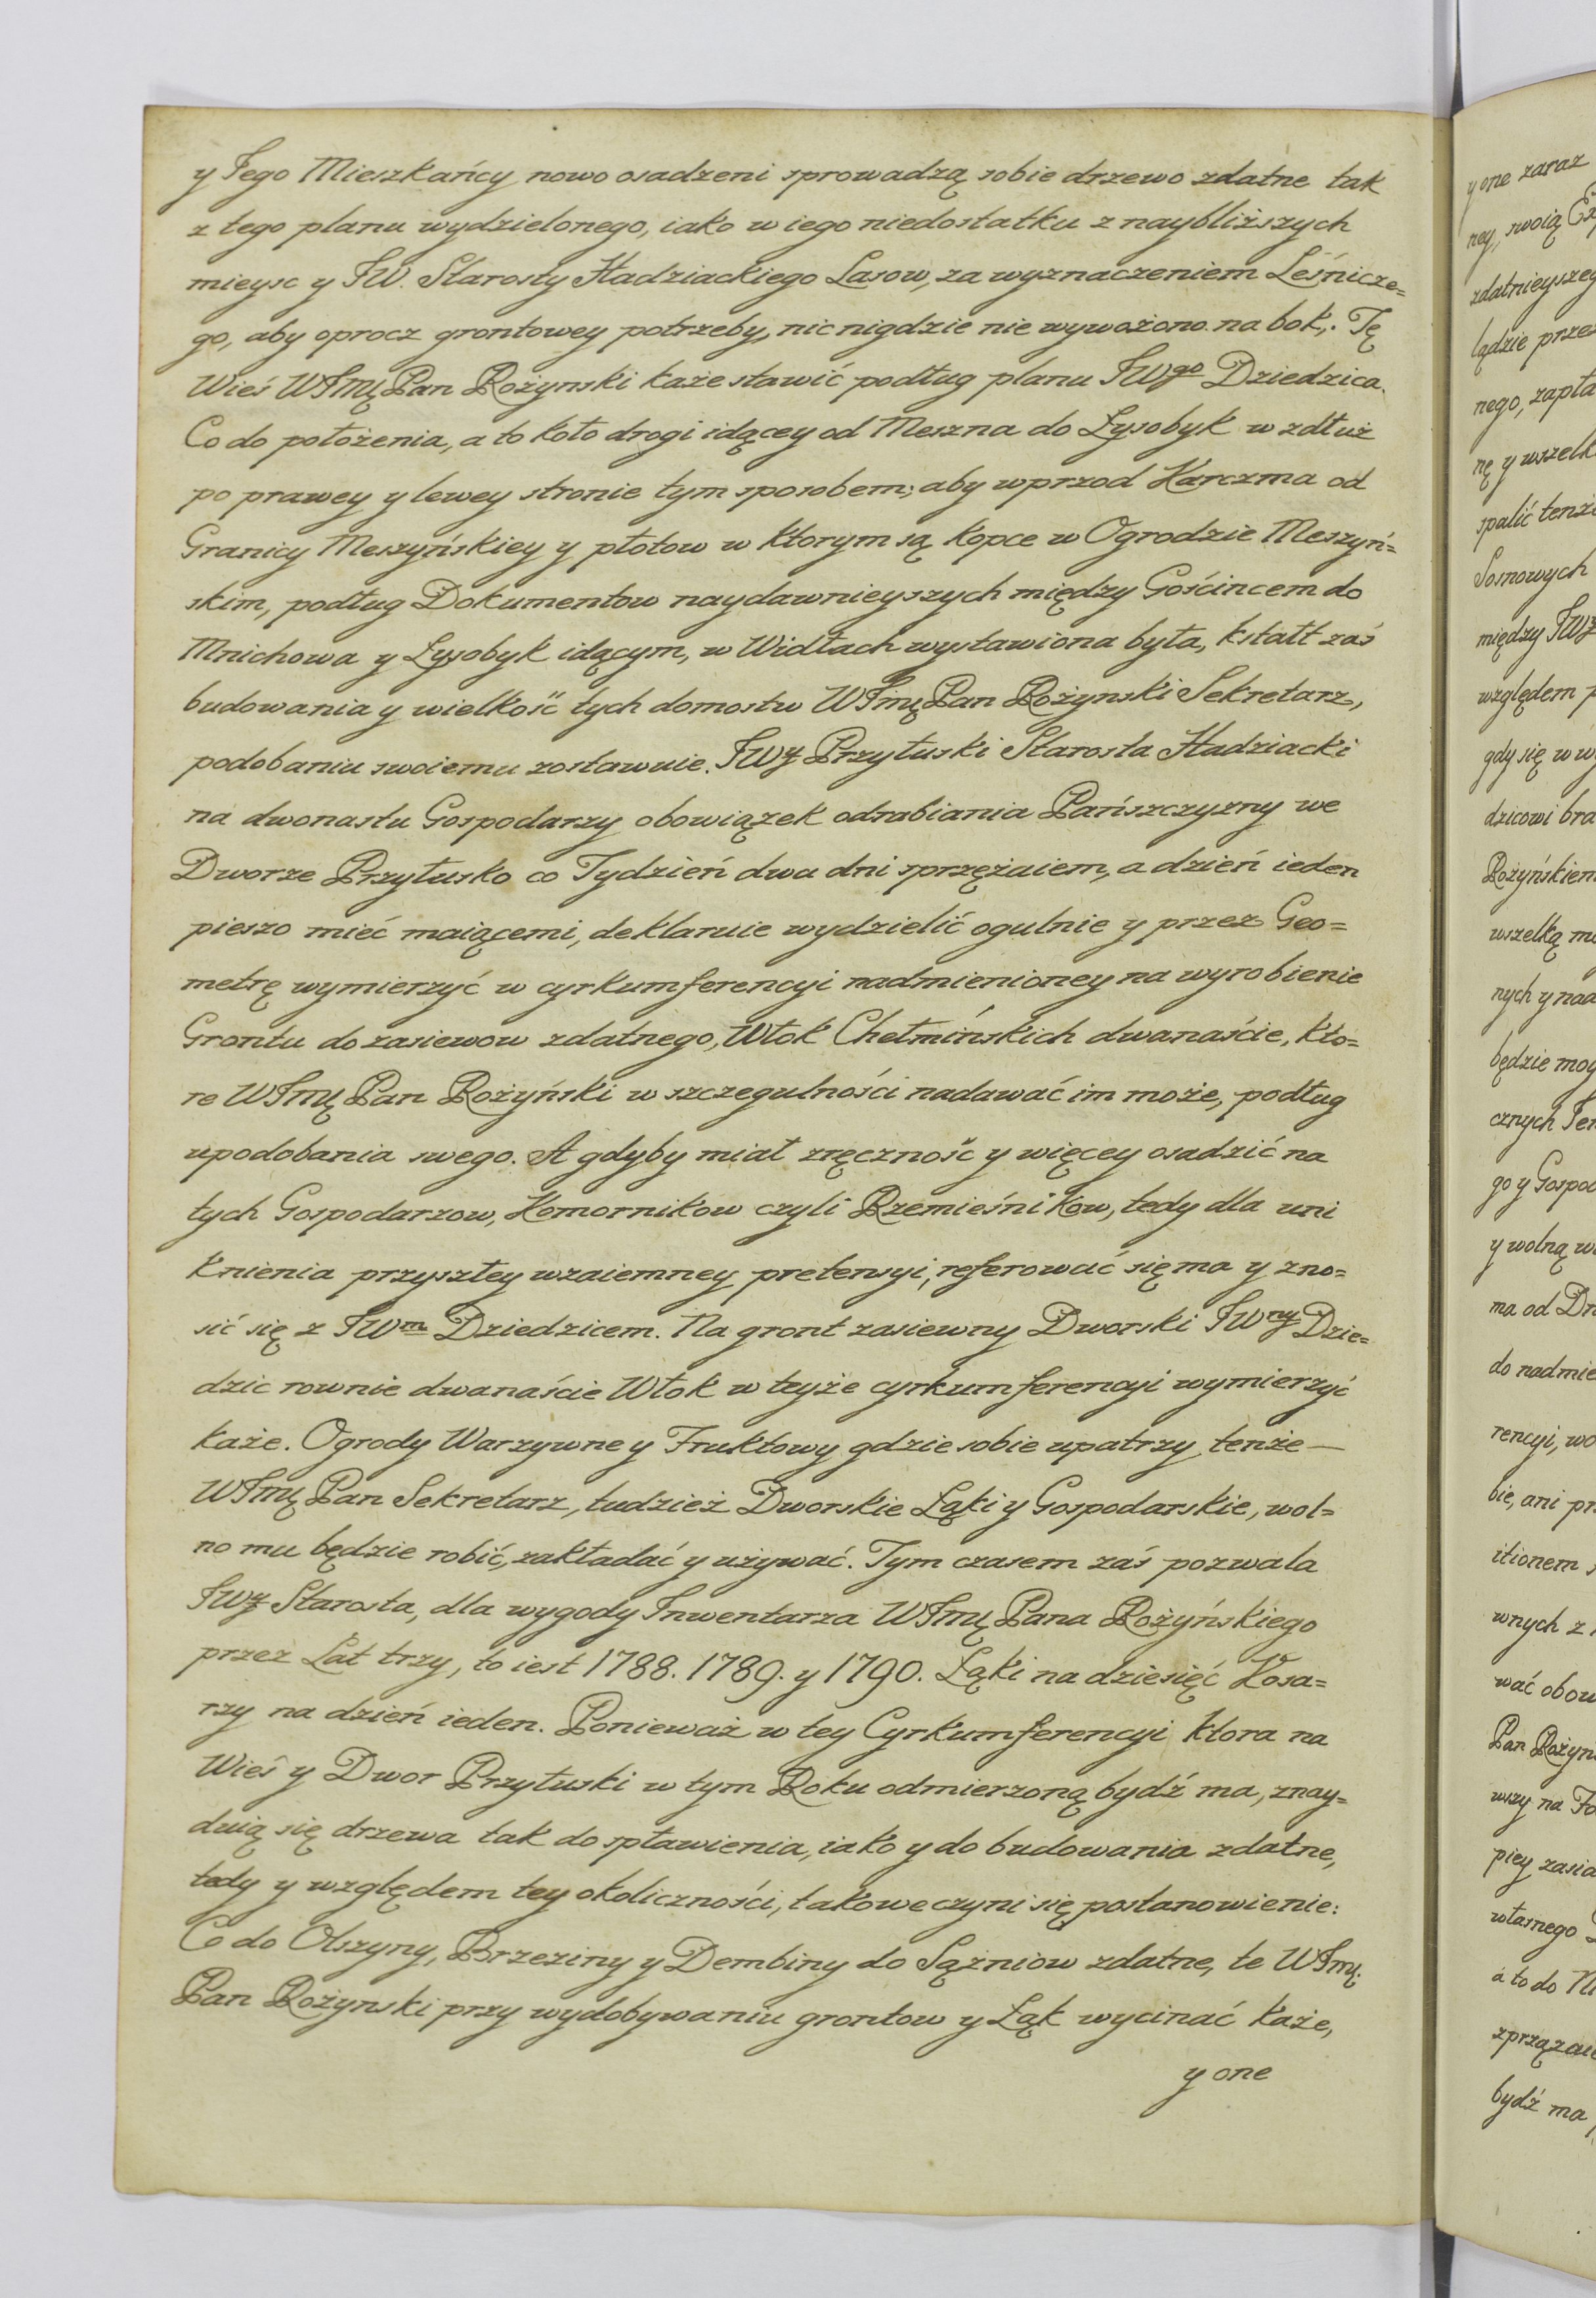 y Jego Mieszkańcy nowo osadzeni sprowadzą sobie drzewo zdatne tak
z tego planu wydzielonego, iako w iego niedostatku z naybliższych
mieysc y JW. Starosty Hadziackiego Lasow, za wyznaczeniem Leśnicze=
go, aby oprocz grontowey potrzeby, nic nigdzie nie wywożono na bok. Tę
Wieś WJmę Pan Rożynski każe stawić podług planu JWgo Dziedzica.
Co do położenia, a to koło drogi idącey od Meszna do Łysobyk w zdłuż
po prawey y lewey stronie tym sposobem; aby wprzod Karczma od
Granicy Meszyńskiey y płotow w ktorym są kopce w Ogrodzie Meszyń=
skim, podług Dokumentow naydawnieyszych między Gościncem do
Mnichowa y Łysobyk idącym, w Widłach wystawiona była, kstałt zaś
budowania y wielkość tych domostw WJmę Pan Rożynski Sekretarz,
podobaniu swoiemu zostawuie. JWy Przyłuski Starosta Hadziacki
na dwonastu Gospodarzy obowiązek odrabiania Pańszczyzny we
Dworze Przyłusko co Tydzień dwa dni sprzężaiem, a dzień ieden
pieszo mieć maiącemi, deklaruie wydzielić ogulnie y przez Geo=
metrę wymierzyć w cyrkumferencyi nadmienioney na wyrobienie
Grontu do zasiewow zdatnego, Włok Chełmińskich dwanaście, kto=
re WJmę Pan Rożyński w szczegulności nadawać im może, podług
upodobania swego. A gdyby miał zręczność y więcey osadzić na
tych Gospodarzow, Komornikow czyli Rzemieśnikow, tedy dla uni
knienia przyszłey wzaiemney pretensyi, referować się ma y zno=
sić się z JWm Dziedzicem. Na gront zasiewny Dworski JWny Dzie=
dzic rownie dwanaście Włok w teyże cyrkumferencyi wymierzyć
każe. Ogrody Warzywne y Fruktowy gdzie sobie upatrzy tenże —
WJmę Pan Sekretarz, tudzież Dworskie Łąki y Gospodarskie, wol=
no mu będzie robić, zakładać y używać. Tym czasem zaś pozwala
JWy Starosta, dla wygody Inwentarza WJmę Pana Rożyńskiego
przez Lat trzy, to iest 1788. 1789. y 1790. Łąki na dziesięć Kosa=
rzy na dzień ieden. Ponieważ w tey Cyrkumferencyi ktora na
Wieś y Dwor Przyłuski w tym Roku odmierzoną bydź ma, znay=
duią się drzewa tak do spławienia, iako y do budowania zdatne,
tedy y względem tey okoliczności, takowe czyni się postanowienie:
Co do Olszyny, Brzeziny y Dembiny do Sążniow zdatne, te WJmę.
Pan Rożynski przy wydobywaniu grontow y Łąk wycinać każe,
y one
y one zaraz
ney, swoią
zdatnieyszey
lądzie prze
nego, zapła
nę y wszelk
spalić tenż
Sosnowych
między JWy
względem p
gdy się w w
dzicowi bra
Rożyńskiem
wszelką m
nych y nad
będzie mog
cznych Ter
go y Gospod
y wolną w
ma od D
do nadmie
rencyi, wo
bie, ani pr
itionem
wnych z
wać obow
Pan Rożyn
wszy na Fo
piey zasia
własnego
a to do
zprząza
bydź ma,